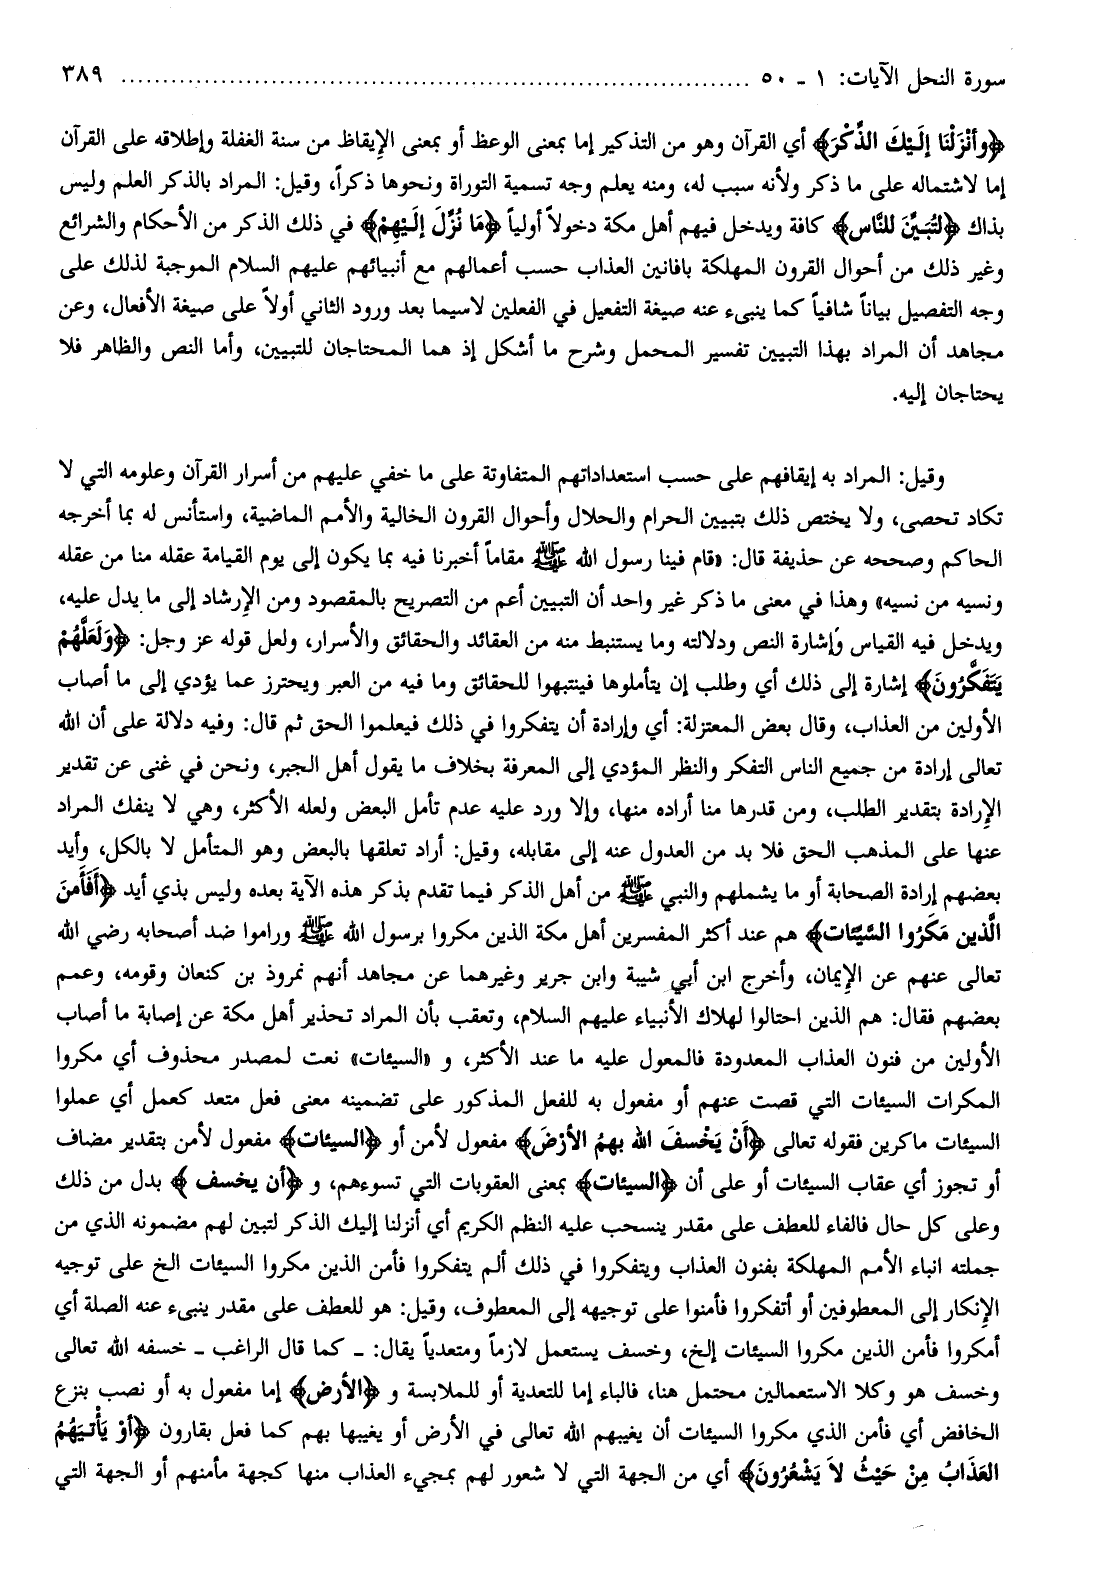 سورة النحل الآيات: ١ ـ ٥٠ .......................................................................................... ٣٨٩
﴿وأنْزَلْنَا إلَيْكَ الذِّكْرَ﴾ أي القرآن وهو من التذكير إما بمعنى الوعظ أو بمعنى الإيقاظ من سنة الغفلة وإطلاقه على القرآن
إما لاشتماله على ما ذكر ولأنه سبب له، ومنه يعلم وجه تسمية التوراة ونحوها ذكراً، وقيل: المراد بالذكر العلم وليس
بذاك ﴿لتُبَيِّنَ للنَّاس﴾ كافة ويدخل فيهم أهل مكة دخولاً أولياً ﴿مَا نُزِّلَ إلَيْهِمْ﴾ في ذلك الذكر من الأحكام والشرائع
وغير ذلك من أحوال القرون المهلكة بافانين العذاب حسب أعمالهم مع أنبيائهم عليهم السلام الموجبة لذلك على
وجه التفصيل بياناً شافياً كما ينبىء عنه صيغة التفعيل في الفعلين لاسيما بعد ورود الثاني أولاً على صيغة الأفعال، وعن
مجاهد أن المراد بهذا التبيين تفسير المحمل وشرح ما أشكل إذ هما المحتاجان للتبيين، وأما النص والظاهر فلا
يحتاجان إليه.
وقيل: المراد به إيقافهم على حسب استعداداتهم المتفاوتة على ما خفي عليهم من أسرار القرآن وعلومه التي لا
تكاد تحصى، ولا يختص ذلك بتبيين الحرام والحلال وأحوال القرون الخالية والأمم الماضية، واستأنس له بما أخرجه
الحاكم وصححه عن حذيفة قال: «قام فينا رسول الله ﷺ مقاماً أخبرنا فيه بما يكون إلى يوم القيامة عقله منا من عقله
ونسيه من نسيه» وهذا في معنى ما ذكر غير واحد أن التبيين أعم من التصريح بالمقصود ومن الإرشاد إلى ما يدل عليه،
ويدخل فيه القياس وإشارة النص ودلالته وما يستنبط منه من العقائد والحقائق والأسرار، ولعل قوله عز وجل: ﴿وَلَعَلَّهُمْ
يَتَفَكَّرُونَ﴾ إشارة إلى ذلك أي وطلب إن يتأملوها فينتبهوا للحقائق وما فيه من العبر ويحترز عما يؤدي إلى ما أصاب
الأولين من العذاب، وقال بعض المعتزلة: أي وإرادة أن يتفكروا في ذلك فيعلموا الحق ثم قال: وفيه دلالة على أن الله
تعالى إرادة من جميع الناس التفكر والنظر المؤدي إلى المعرفة بخلاف ما يقول أهل الجبر، ونحن في غنى عن تقدير
الإرادة بتقدير الطلب، ومن قدرها منا أراده منها، وإلا ورد عليه عدم تأمل البعض ولعله الأكثر، وهي لا ينفك المراد
عنها على المذهب الحق فلا بد من العدول عنه إلى مقابله، وقيل: أراد تعلقها بالبعض وهو المتأمل لا بالكل، وأيد
بعضهم إرادة الصحابة أو ما يشملهم والنبي ﷺ من أهل الذكر فيما تقدم بذكر هذه الآية بعده وليس بذي أيد ﴿أَفَأَمنَ
الَّذين مَكَرُوا السَّيِّئات﴾ هم عند أكثر المفسرين أهل مكة الذين مكروا برسول الله ﷺ وراموا ضد أصحابه رضي الله
تعالى عنهم عن الإيمان، وأخرج ابن أبي شيبة وابن جرير وغيرهما عن مجاهد أنهم نمروذ بن كنعان وقومه، وعمم
بعضهم فقال: هم الذين احتالوا لهلاك الأنبياء عليهم السلام، وتعقب بأن المراد تحذير أهل مكة عن إصابة ما أصاب
الأولين من فنون العذاب المعدودة فالمعول عليه ما عند الأكثر، و «السيئات» نعت لمصدر محذوف أي مكروا
المكرات السيئات التي قصت عنهم أو مفعول به للفعل المذكور على تضمينه معنى فعل متعد كعمل أي عملوا
السيئات ماكرين فقوله تعالى ﴿أَنْ يَخْسفَ الله بهمُ الأرْضَ﴾ مفعول لأمن أو ﴿السيئات﴾ مفعول لأمن بتقدير مضاف
أو تجوز أي عقاب السيئات أو على أن ﴿السيئات﴾ بمعنى العقوبات التي تسوءهم، و ﴿أن يخسف ﴾ بدل من ذلك
وعلى كل حال فالفاء للعطف على مقدر ينسحب عليه النظم الكريم أي أنزلنا إليك الذكر لتبين لهم مضمونه الذي من
جملته انباء الأمم المهلكة بفنون العذاب ويتفكروا في ذلك ألم يتفكروا فأمن الذين مكروا السيئات الخ على توجيه
الإنكار إلى المعطوفين أو أتفكروا فأمنوا على توجيهه إلى المعطوف، وقيل: هو للعطف على مقدر ينبىء عنه الصلة أي
أمكروا فأمن الذين مكروا السيئات إلخ، وخسف يستعمل لازماً ومتعدياً يقال: ـ كما قال الراغب ـ خسفه الله تعالى
وخسف هو وكلا الاستعمالين محتمل هنا، فالباء إما للتعدية أو للملابسة و ﴿الأرض﴾ إما مفعول به أو نصب بنزع
الخافض أي فأمن الذي مكروا السيئات أن يغيبهم الله تعالى في الأرض أو يغيبها بهم كما فعل بقارون ﴿أوْ يَأْتيَهُمُ
العَذَابُ مِنْ حَيْثُ لاَ يَشْعُرُونَ﴾ أي من الجهة التي لا شعور لهم بمجيء العذاب منها كجهة مأمنهم أو الجهة التي